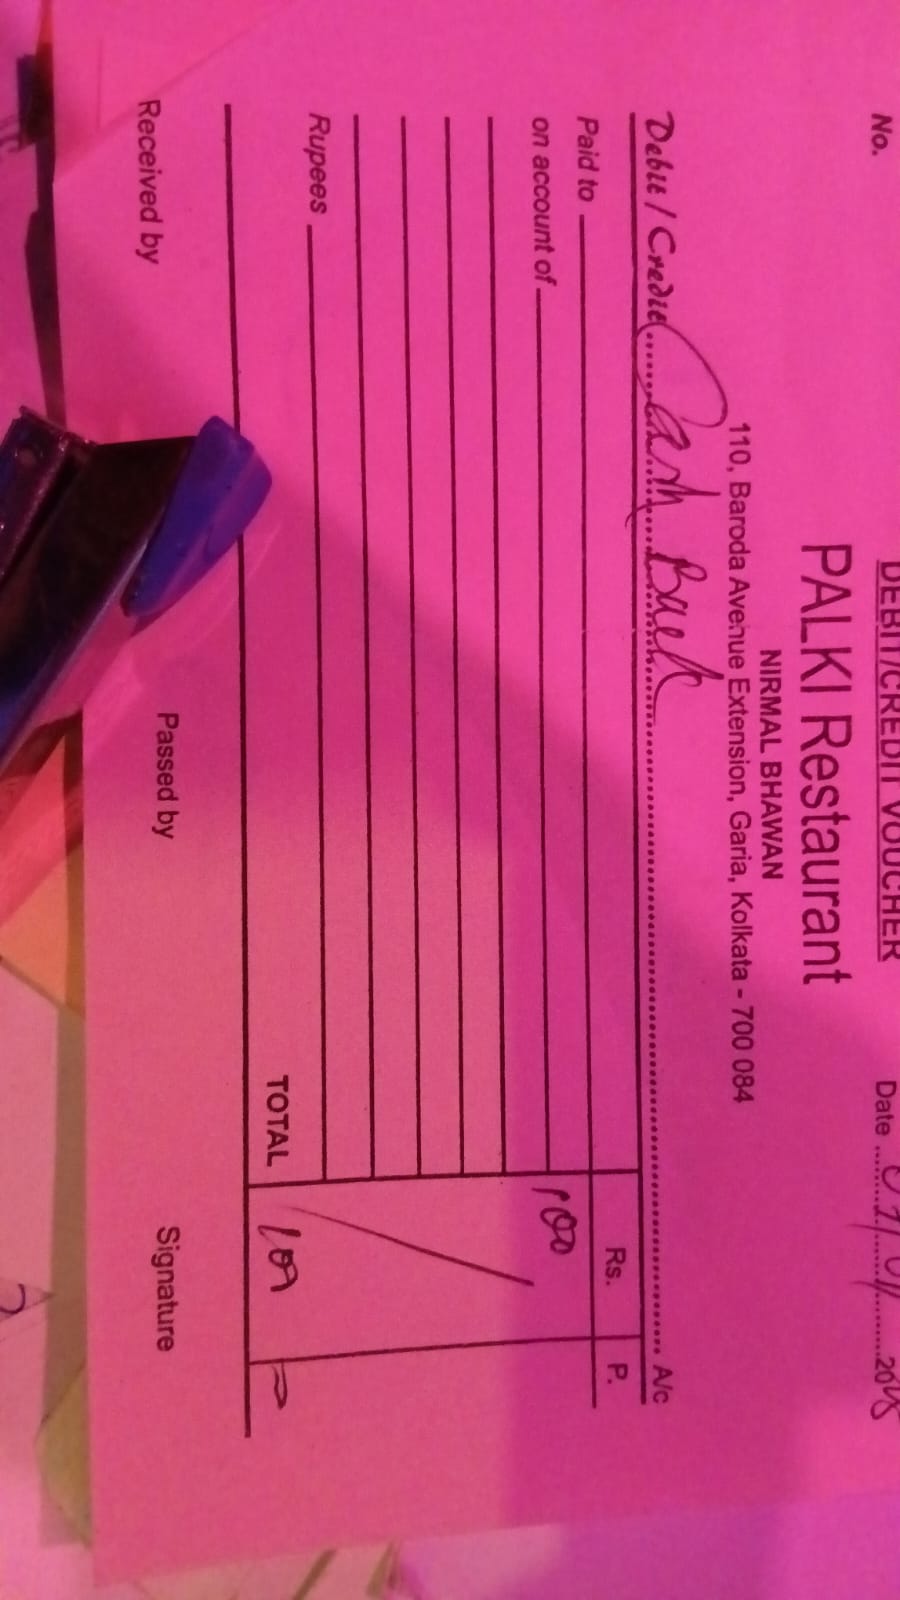 DEBIT/CREDIT VOUCHER
PALKI Restaurant
NIRMAL BHAWAN
110, Baroda Avenue Extension, Garia, Kolkata - 700 084
No. Date 20
Debit / Credit Cash Back A/c
Rs. P.
Paid to
on account of 100
Rupees
TOTAL 100
Received by Passed by Signature